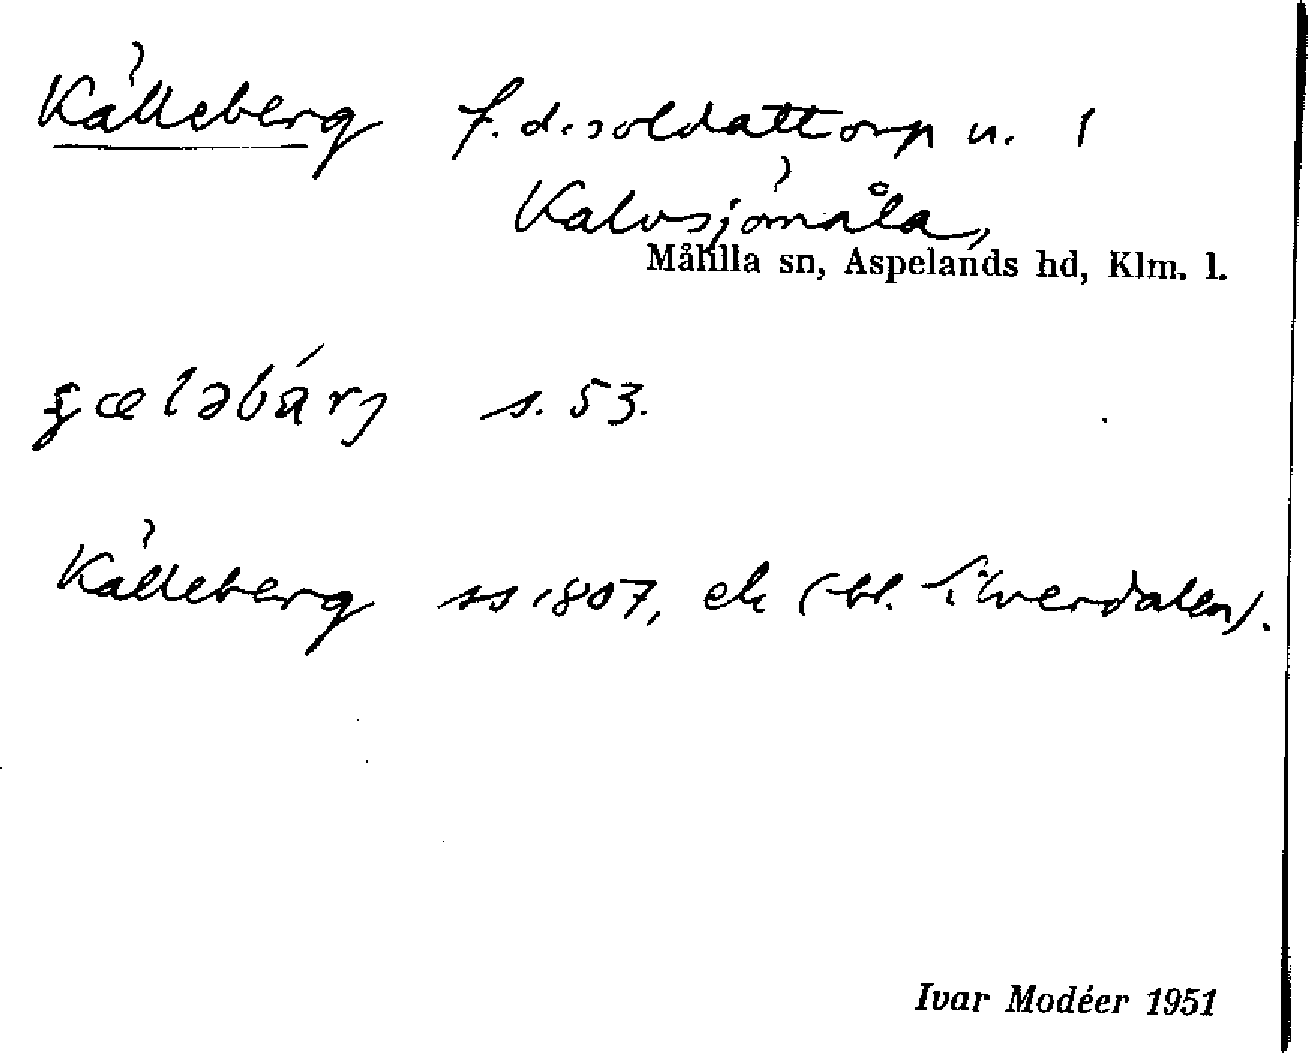 Källeberg f.d. soldattorp u. 1
Kalvsjömåla,
Målilla sn, Aspelands hd, Klm. l.
s. 53.
Källeberg ss 1807, ek (bl. Silverdalen).
Ivar Modéer 1951